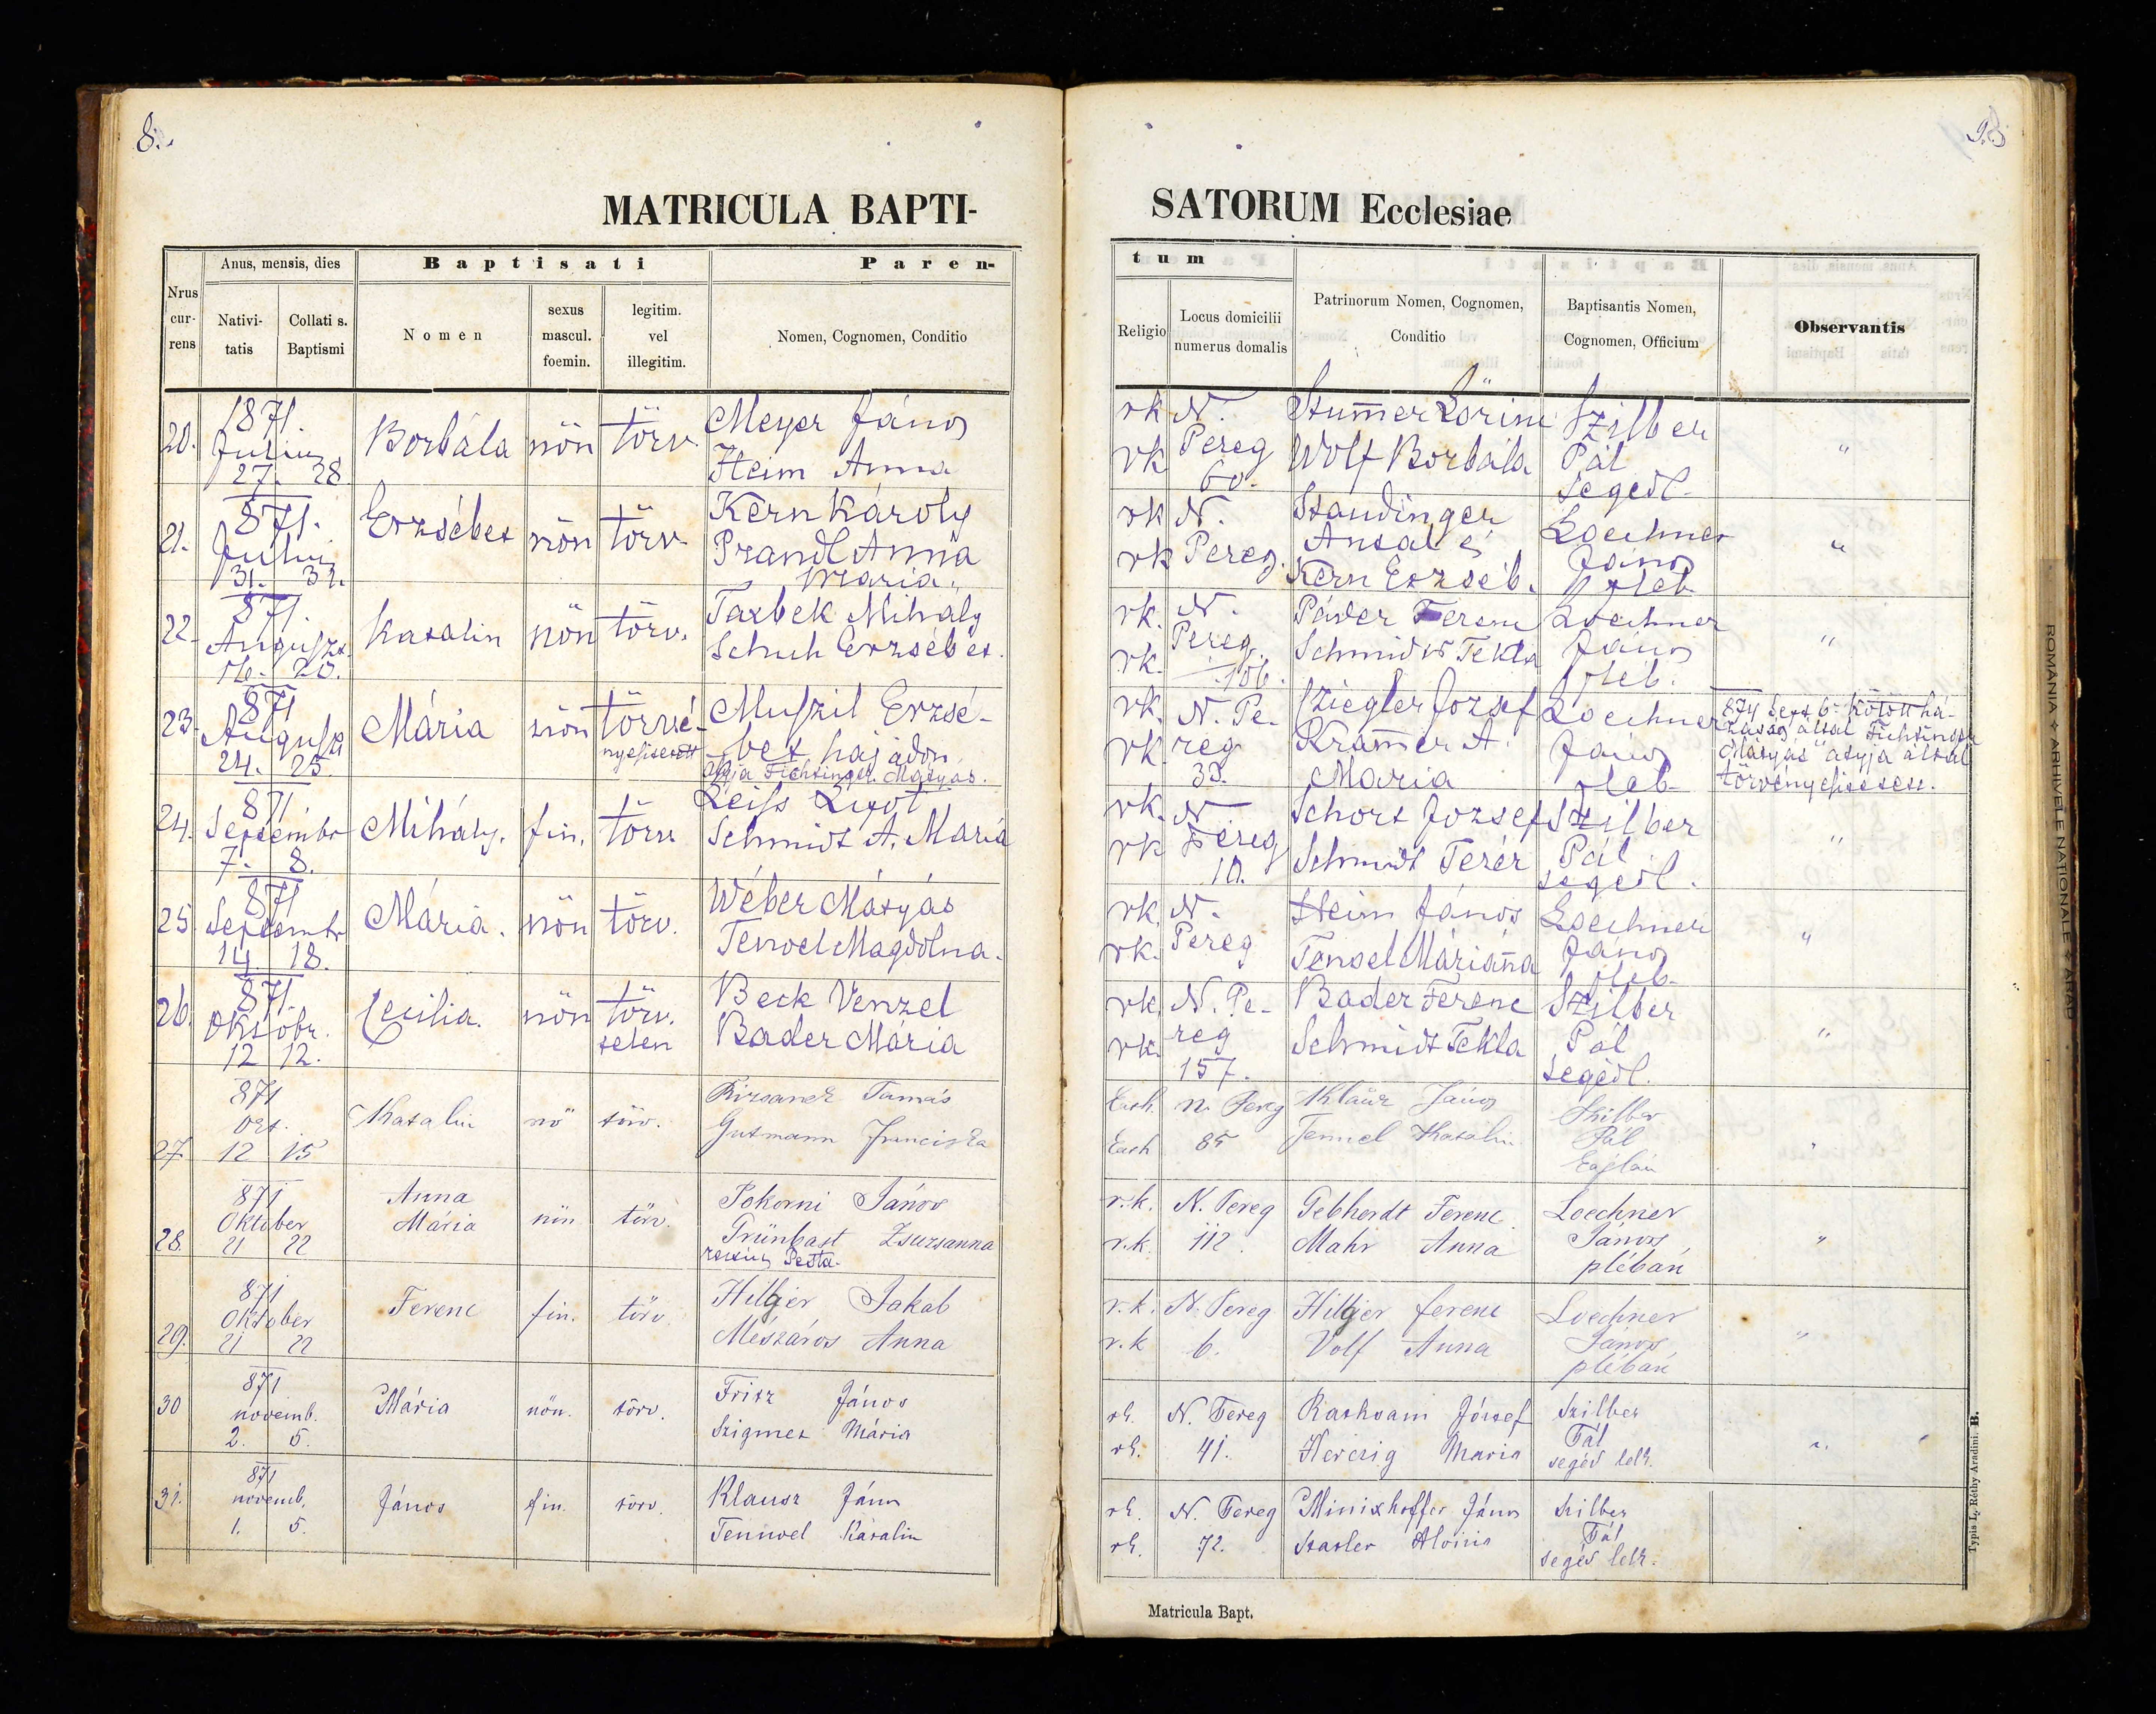 8.
MATRICULA BAPTI-
Nrus cur- rens
Anus, mensis, dies
Nativi- tatis
Collati s. Baptismi
Baptisati
Nomen
sexus mascul. foemin.
legitim. vel illegitim.
Paren-
Nomen, Cognomen, Conditio
20. 1871. Julius 27. 28. Borbála nön törv. Meyer János
Heim Anna
21. 871. Julius 31. 31. Erzsébet nön törv. Kern Károly
Prandl Anna
Maria.
22. 871. Auguszt. 16. 20. Katalin nön törv. Taxbek Mihály
Schuh Erzsébet.
23. 871 August 24. 25. Mária nön törvé-
nyesitetett
Muszil Erzsé-
bet hajadon
atyja Fichtinger Mátyás.
24. 871. Septembr 7. 8. Mihály. fin. törv. Leiss Lipót
Schmidt A. Maria
25. 871 Septembr 14. 18. Mária. nön törv. Wéber Mátyás
Tenvel Magdolna.
26. 871. Októbr. 12 12. Cecilia. nön törv.
telen
Beck Venzel
Bader Mária
27. 871 Oct. 12 15 Katalin nö törv. Tamás
Gutmann Franciska
28. 871 Oktober 21 22 Anna
Mária nön törv. Pokorni János
Grünbast Zsuzsanna
29. 871 Oktober 21 22 Ferenc fin. törv. Hilger Jakab
Mészáros Anna
30 871 novemb. 2. 5. Mária nön. törv. Frisz János
Szigmet Mária
31. 871 novemb. 1. 5. János fin. törv. Klausz János
Tennvel Katalin
SATORUM Ecclesiae
tum
Religio
Locus domicilii numerus domalis
Patrinorum Nomen, Cognomen, Conditio
Baptisantis Nomen, Cognomen, Officium
Observantis
rk N. Stum̄er Lörinc Szilber
rk Pereg Wolf Borbála Pál
60. segédl. "
rk N. Staudinger Loechner
rk Pereg. Antal és János
Kern Erzséb. pleb "
rk. N. Páder Ferenc Loechner
rk. Pereg. Schmidt Tekla János
106. pleb. "
rk. N. Pe- Sziegler Jozsef Loechner
rk. reg Kram̄er A. János
33. Maria pleb.
874 Sept. 6. kötött há-
zasság által Fichtinger
Mátyás atyja által
törvényesitetett.
rk. N. Schort Jozsef Szilber
rk Pereg Schmidt Teréz Pál
10. segédl. "
rk. N. Heim János Loechner
rk. Pereg Tenvel Márián̄a János
pleb. "
rk. N. Pe- Bader Ferenc Szilber
rk. reg Schmidt Tekla Pál
157. segédl. "
n. Pereg Klauz János Szilber
85 Tennel Katalin Pál
káplán "
r.k. N. Pereg Gebhardt Ferenc. Loechner
r.k. 112. Mahr Anna János
plébán "
r.k. N. Pereg Hilger ferenc Loechner
r.k 6. Volf Anna János
plébán "
rk. N. Pereg József Szilber
rk. 41. Herczig Maria Pál
segéd lelk. "
rk. N. Pereg Minixhoffer János Szilber
rk. 72. Aloisia Pál
segéd lelk.
Matricula Bapt.
Typis L. Réthy Aradini. B.
ROMANIA ❖ ARHIVELE NATIONALE ❖ ARAD